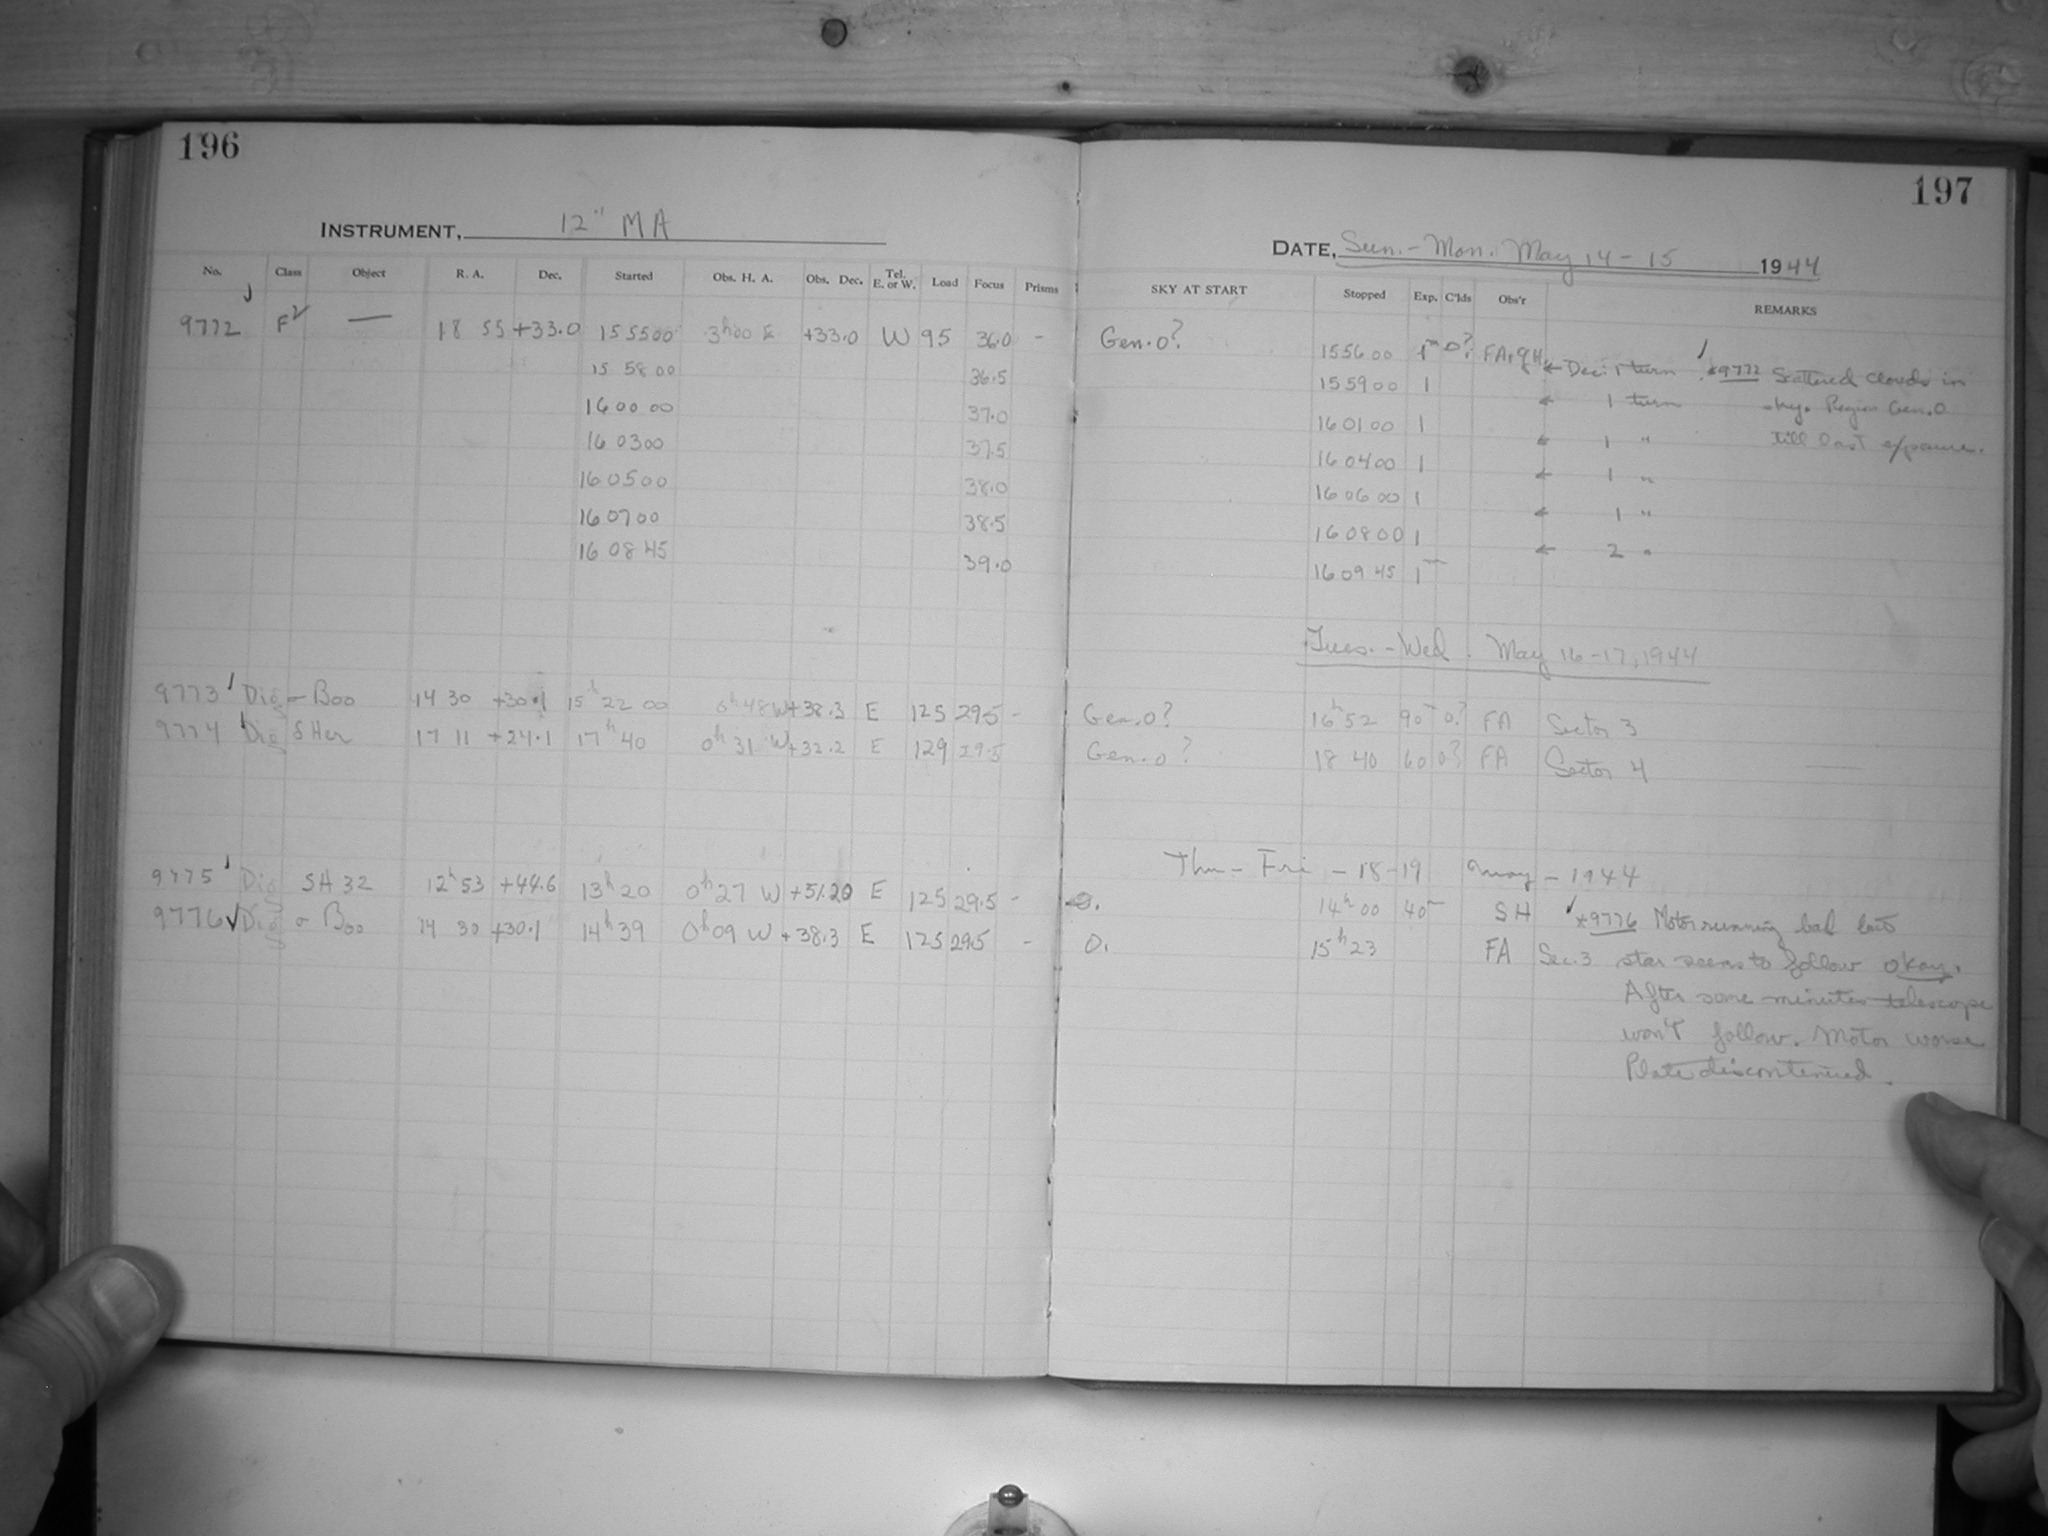 196
197
INSTRUMENT, 12" MA
DATE, Sun.-Mon. May 14-15 1944
No. Class Object R. A. Dec. Started Obs. H. A. Obs. Dec. Tel. E. or W. Load Focus Prisms SKY AT START Stopped Exp. C'lds Obs'r REMARKS
9772 F2 — 18 55 +33.0 15 55 00 3h00 E +33.0 W 95 36.0 - Gen. 0? 15 56 00 1m 0? FA, ← Dec. 1 turn *9772 Scattered clouds in
15 58 00 36.5 15 59 00 1 ← 1 turn sky. Region Gen. 0
16 00 00 37.0 16 01 00 1 ← 1 " till last exposure.
16 03 00 37.5 16 04 00 1 ← 1 "
16 05 00 38.0 16 06 00 1 ← 1 "
16 07 00 38.5 16 08 00 1 ← 2 "
16 08 45 39.0 16 09 45 1m
Tues.-Wed. May 16-17, 1944
9773 Dig σ Boo 14 30 +30.1 15h 22 00 0h 48 W +38.3 E 125 29.5 - Gen. 0? 16h 52 90m 0? FA Sector 3
9774 Dig SHer 17 11 +24.1 17h 40 0h 31 W +32.2 E 129 29.5 Gen. 0? 18 40 60 0? FA Sector 4 —
Thu-Fri - 18-19 May - 1944
9775 Dig SH 32 12h 53 +44.6 13h 20 0h 27 W +51.20 E 125 29.5 - 0. 14h 00 40m SH *9776 Motor running bad but
9776 Dig σ Boo 14 30 +30.1 14h 39 0h 09 W +38.3 E 125 29.5 - 0. 15h 23 FA Sec. 3 star seems to follow okay.
After some minutes telescope
won't follow. Motor worse
Plate discontinued.